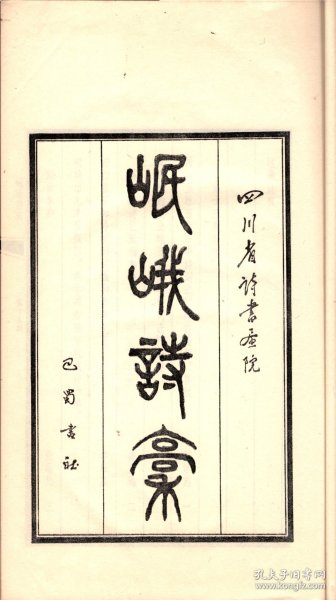 四川省诗书画院
岷峨詩稾
巴蜀書社
孔夫子旧书网